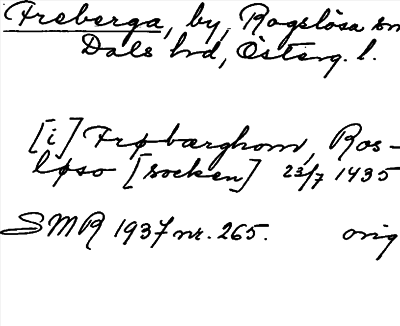 Freberga, by, Rogslösa sn
Dals hd, Österg. l.
[i] Frøbærghom, Ros-
løso [socken] 23/7 1435
SMR 1937 nr. 265. orig